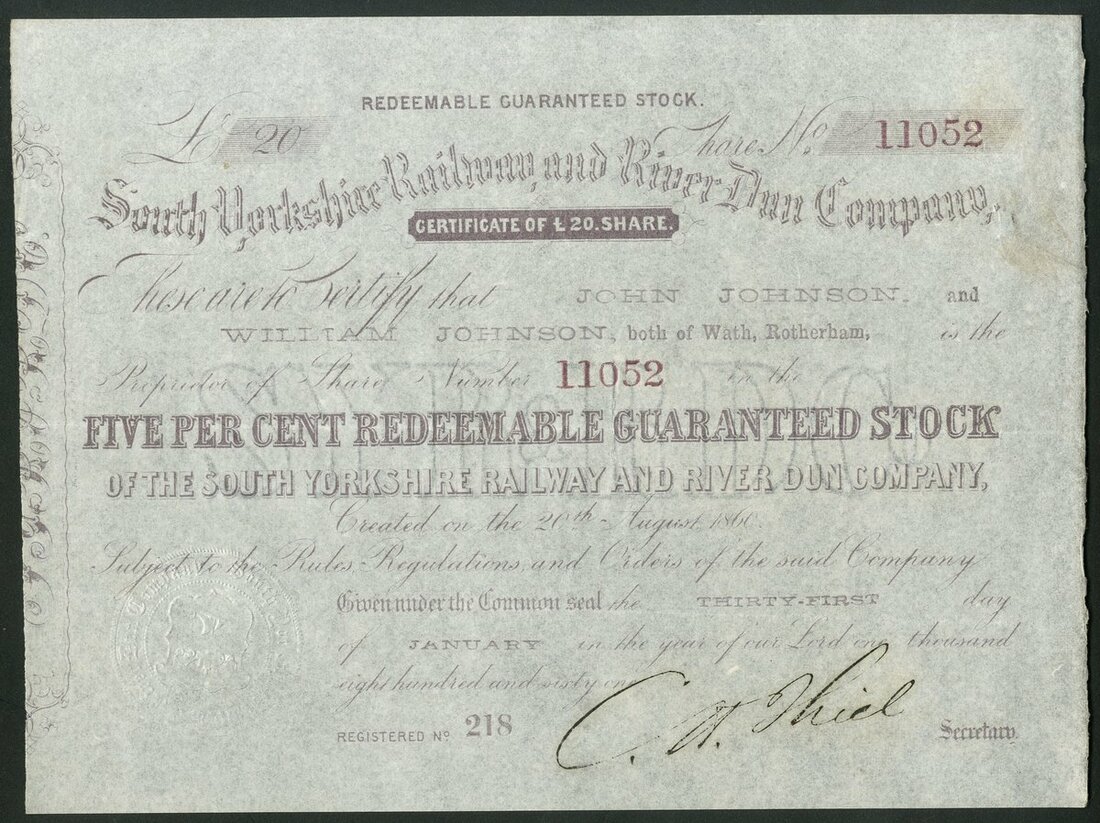 REDEEMABLE GUARANTEED STOCK.
£ 20 Share No. 11052
South Yorkshire Railway, and River Dun Company,
CERTIFICATE OF £20. SHARE.
These are to Certify that JOHN JOHNSON. and
WILLIAM JOHNSON, both of Wath, Rotherham, is the
Proprietor of Share Number 11052 in the
FIVE PER CENT REDEEMABLE GUARANTEED STOCK
OF THE SOUTH YORKSHIRE RAILWAY AND RIVER DUN COMPANY,
Created on the 20th August, 1860.
Subject to the Rules, Regulations, and Orders of the said Company
Given under the Common seal the THIRTY-FIRST day
of JANUARY in the year of our Lord one thousand
eight hundred and sixty one
REGISTERED No 218
C. W. Thiel
Secretary.